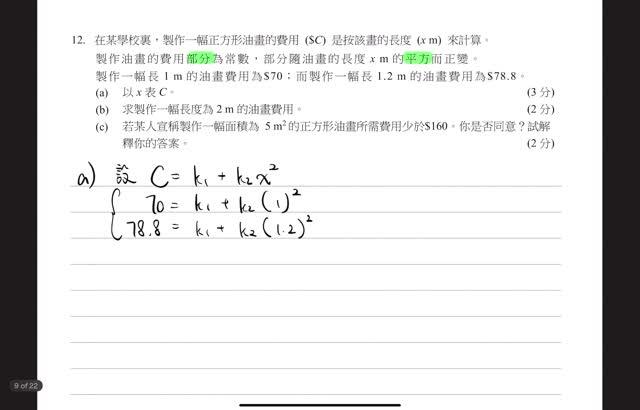 12. 在某學校裏，製作一幅正方形油畫的費用 ($C) 是按該畫的長度 (x m) 來計算。
製作油畫的費用部分為常數，部分隨油畫的長度 x m 的平方而正變。
製作一幅長 1 m 的油畫費用為$70；而製作一幅長 1.2 m 的油畫費用為$78.8。
(a) 以 x 表 C。 (3 分)
(b) 求製作一幅長度為 2 m 的油畫費用。 (2 分)
(c) 若某人宣稱製作一幅面積為 5 m² 的正方形油畫所需費用少於$160。你是否同意？試解
釋你的答案。 (2 分)
a) 設 C = k₁ + k₂x²
70 = k₁ + k₂(1)²
78.8 = k₁ + k₂(1.2)²
9 of 22